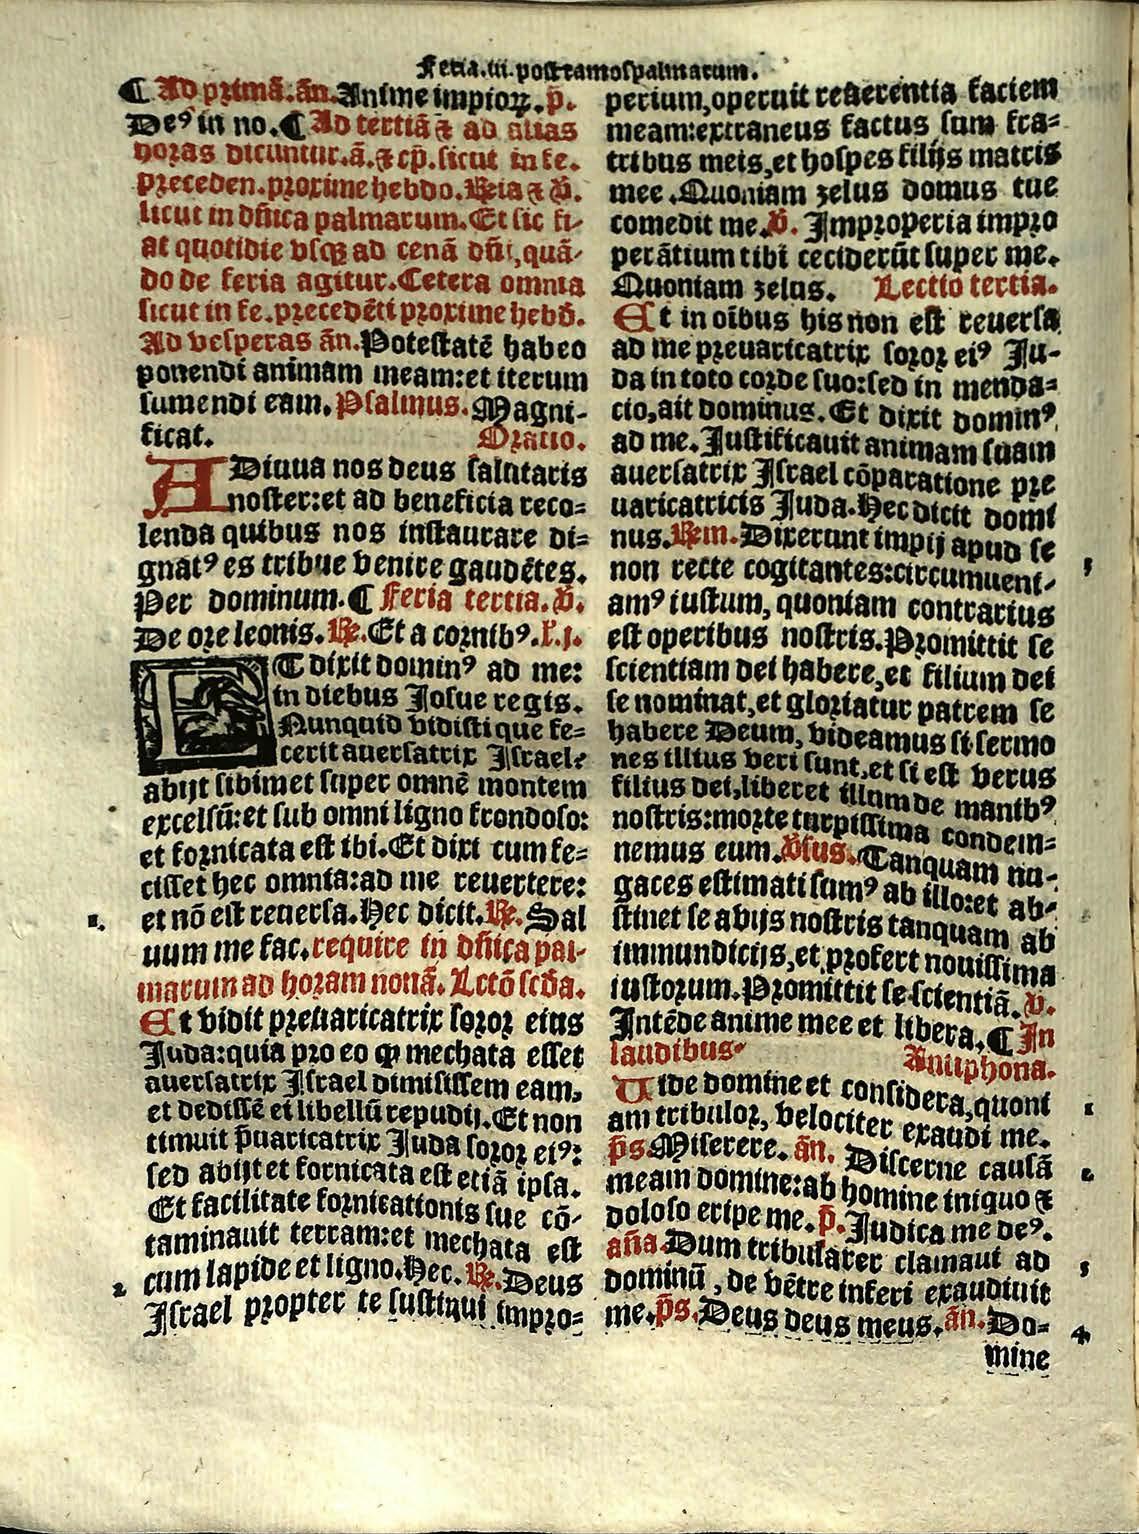 Feria.iii.post ramos palmarum.
¶ Ad primā.añ. Anime impioꝝ.p̄.
Deꝰ in no.¶ Ad tertiā ⁊ ad alias
horas dicuntur.ā.⁊ cp̄.sicut in fe.
preceden.proxime hebdo.℟ia ⁊ ℣.
sicut in dñica palmarum.Et sic fi-
at quotidie vsqꝫ ad cenā dñi, quā-
do de feria agitur.Cetera omnia
sicut in fe.precedēti proxime hebd̄.
Ad vesperas añ. Potestatē habeo
ponendi animam meam:et iterum
sumendi eam. Psalmus. Magni-
ficat. Oratio.
ADiuua nos deus salutaris
noster:et ad beneficia reco=
lenda quibus nos instaurare di=
gnatꝰ es tribue venire gaudētes.
Per dominum.¶ Feria tertia.℣.
De ore leonis.℟. Et a cornibꝰ.ł.j.
ET dixit dominꝰ ad me:
in diebus Josue regis.
Nunquid vidisti que fe=
cerit auersatrix Israel?
abijt sibimet super omnē montem
excelsū:et sub omni ligno frondoso:
et fornicata est ibi.Et dixi cum fe=
cisset hec omnia:ad me reuertere:
1. et nō est reuersa.Hec dicit.℟. Sal
uum me fac.require in dñica pal-
marum ad horam nonā. Lctō scḋa.
Et vidit preuaricatrix soror eius
Juda:quia pro eo ꝙ mechata esset
auersatrix Israel dimisissem eam,
et dedissē ei libellū repudij.Et non
timuit p̄uaricatrix Juda soror eiꝰ:
sed abijt et fornicata est etiā ipsa.
Et facilitate fornicationis sue cō-
taminauit terram:et mechata est
cum lapide et ligno.Hec.℟. Deus
2 Israel propter te sustinui impro=
perium,operuit reuerentia faciem
meam:extraneus factus sum fra=
tribus meis,et hospes filijs matris
mee.Quoniam zelus domus tue
comedit me.℣. Improperia impro
perātium tibi ceciderūt super me.
Quoniam zelus. Lectio tertia.
Et in oībus his non est reuersa
ad me preuaricatrix soror eiꝰ Ju-
da in toto corde suo:sed in menda=
cio,ait dominus.Et dixit dominꝰ
ad me.Justificauit animam suam
auersatrix Israel cōparatione pre
uaricatricis Juda.Hec dicit domi
nus.℟em. Dixerunt impij apud se
non recte cogitantes:circumueni- 3
amꝰ iustum, quoniam contrarius
est operibus nostris.Promittit se
scientiam dei habere,et filium dei
se nominat,et gloriatur patrem se
habere Deum, videamus si sermo
nes illius veri sunt,et si est verus
filius dei,liberet illum de manibꝰ
nostris:morte turpissima condem=
nemus eum.℣sus.Tanquam nu-
gaces estimati sumꝰ ab illo:et ab-
stinet se a vijs nostris tanquam ab
immundicijs,et profert nouissima
iustorum.Promittit se scientiā.℣.
Intēde anime mee et libera.¶ In
laudibus. Antiphona.
Uide domine et considera,quoni 1
am tribulor, velociter exaudi me.
p̄s.Miserere. añ. Discerne causā 2
meam domine:ab homine iniquo ⁊
doloso eripe me. p̄. Judica me deꝰ.
aña.Dum tribularer clamaui ad 3
dominū, de vētre inferi exaudiuit
me.p̄s.Deus deus meus.añ.Do= 4
mine